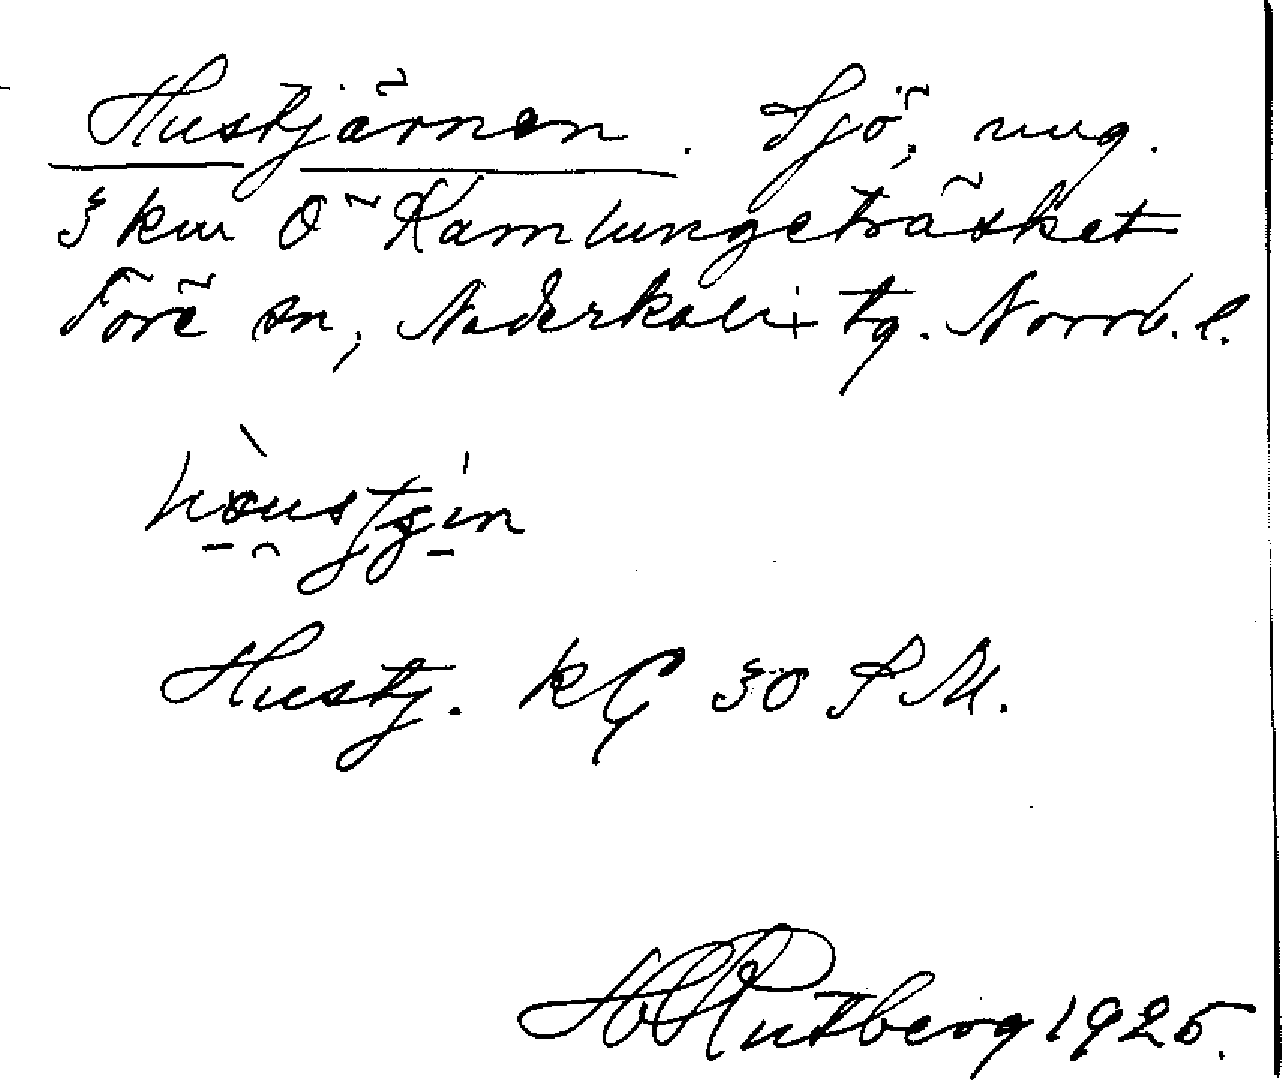 Hustjärnen. Sjö, ung.
3 km Ö Kamlungeträsket
Töre sn, Nederkalix tg. Norrb. l.
Hustj. kG 30 S M.
Rutberg 1925.